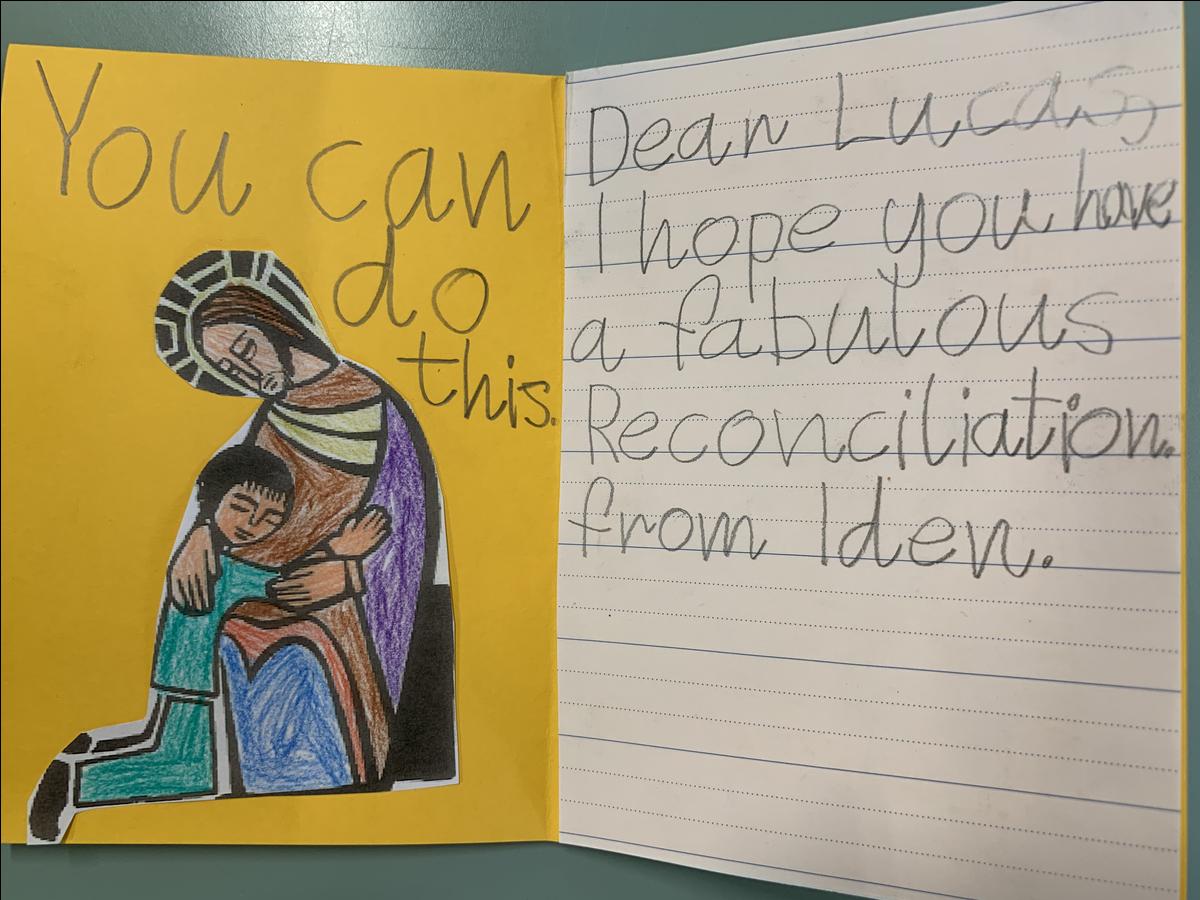 You can
do
this.
Dear Lucas,
I hope you have
a fabulous
Reconciliation.
from Iden.